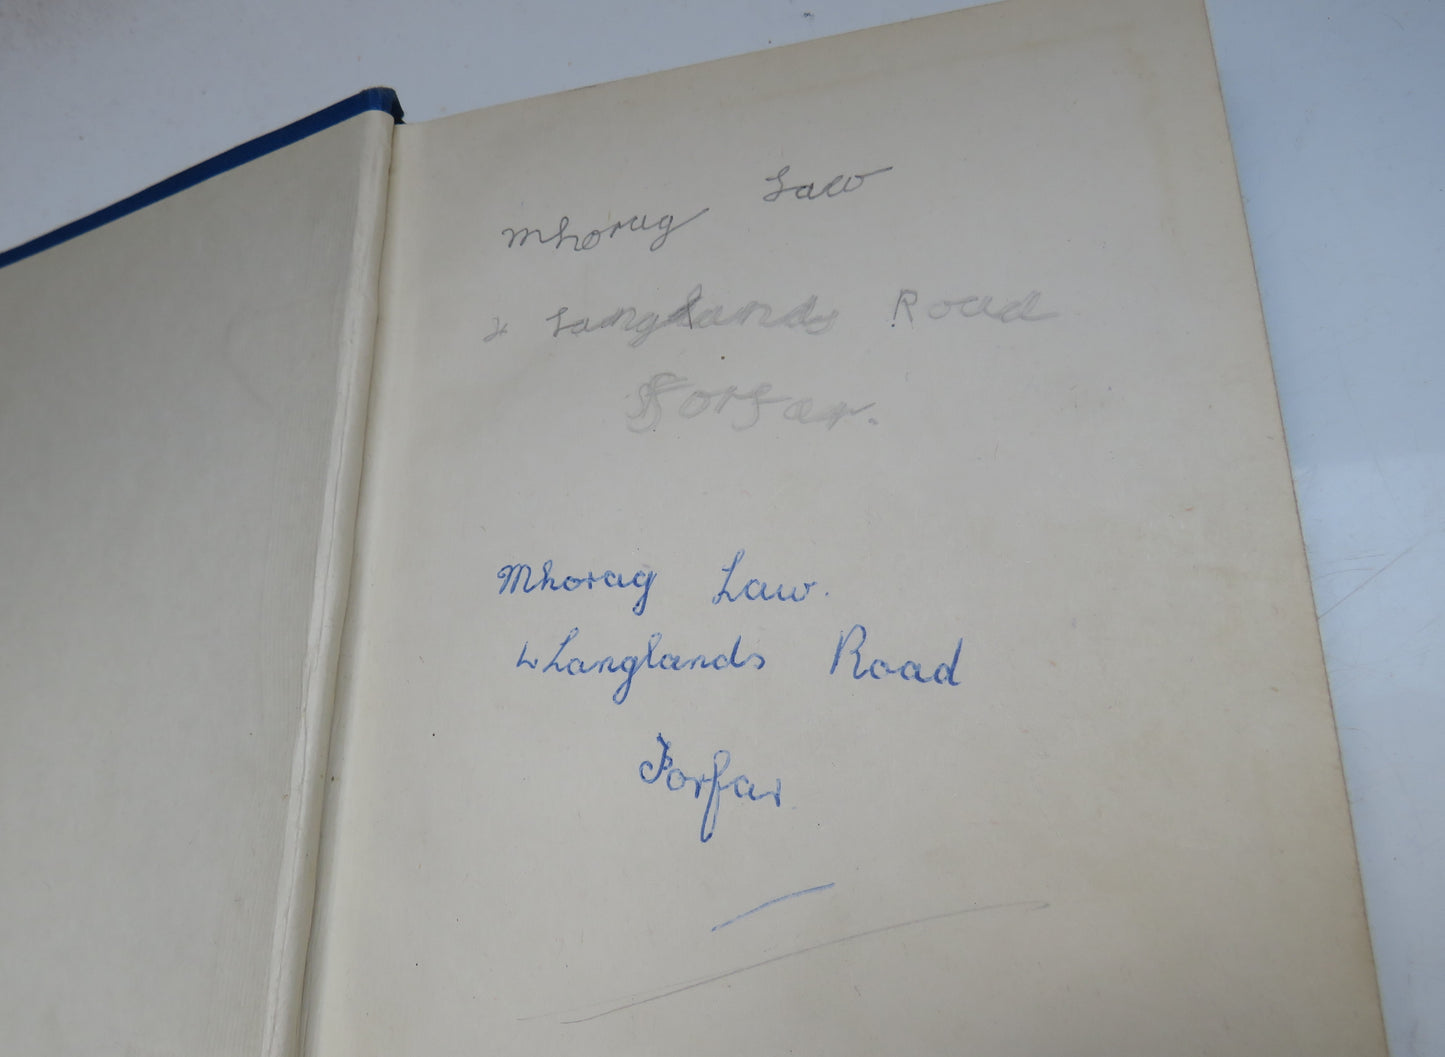 Mhorag Law
4 Langlands Road
Forfar.
Mhorag Law.
4 Langlands Road
Forfar